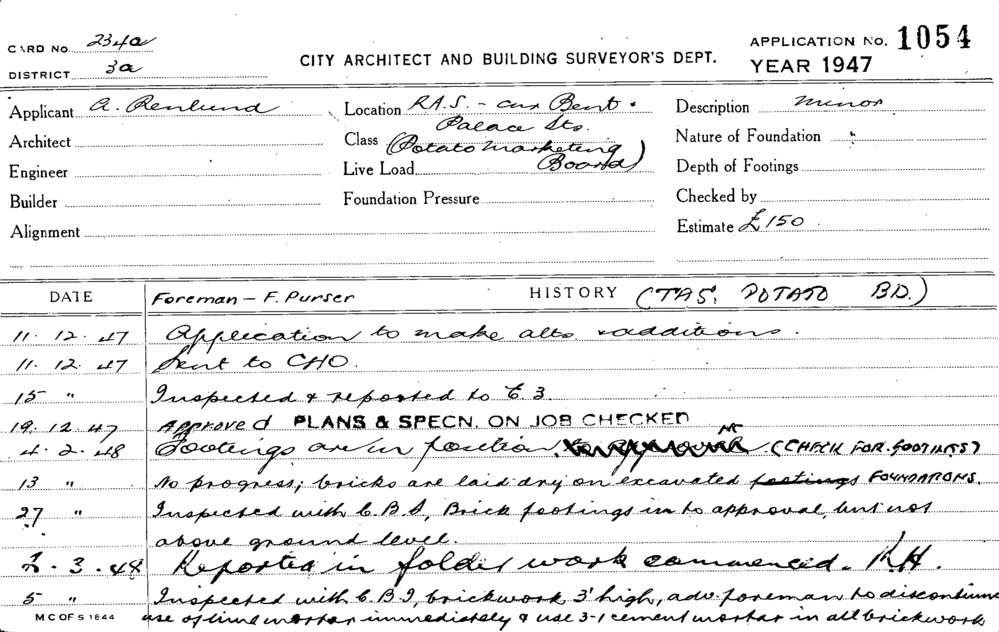 CARD No. 234a
DISTRICT 3a
CITY ARCHITECT AND BUILDING SURVEYOR'S DEPT.
APPLICATION No. 1054
YEAR 1947
Applicant A. Renlund
Architect
Engineer
Builder
Alignment
Location R.A.S. - cnr Bent &
Palace Sts.
Class (Potato Marketing
Live Load Board)
Foundation Pressure
Description minor
Nature of Foundation
Depth of Footings
Checked by
Estimate £150
DATE Foreman - F. Purser HISTORY (TAS. POTATO BD.)
11.12.47 Application to make alts & additions.
11.12.47 Sent to CHO.
15 " Inspected & reported to E.3
19.12.47 Approved PLANS & SPECN. ON JOB CHECKED
4.2.48 Footings are in position (CHECK FOR FOOTINGS)
13 " No progress; bricks are laid dry on excavated footings FOUNDATIONS.
27 " Inspected with C.B.I, Brick footings in to approval, but not
above ground level.
2.3.48 Reported in folder work commenced. KH.
5 " Inspected with C.B.I, brickwork 3' high, adv. foreman to discontinue
M C OF S 1644 use of lime mortar immediately & use 3-1 cement mortar in all brickwork